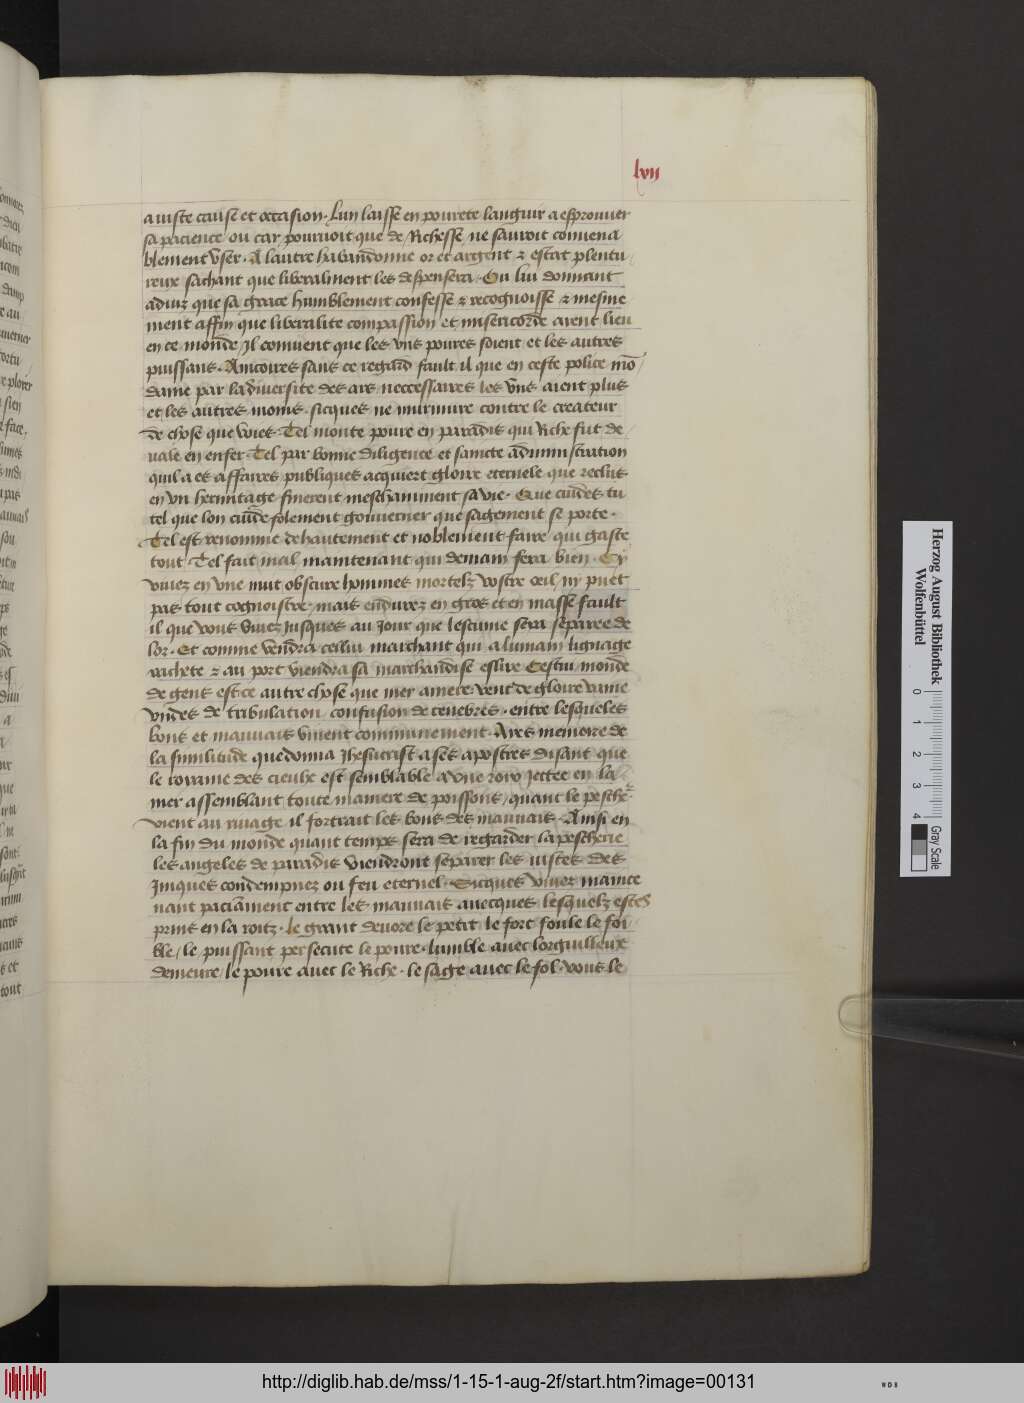 lvii
a iuste cause et occasion. Lun laisse en pourete languir a esprouver
sa pacience ou car pourvoit que de Richesse ne sauroit convena
blement user. A lautre habandonne or et argent & estat plentu
reux sachant que liberalment les despensera. Ou lui donnant
aduiz que sa grace humblement confesse & recognoisse & mesme
ment affin que liberalite compassion et misericorde aient lieu
en ce monde Il convient que les uns poures soient et les autres
puissans. Ancores sans ce regard fault il que en ceste police mo
daine par la diversite des ars neccessaires les uns aient plus
et les autres moins. sicques ne murmure contre le createur
de chose que voies. Tel monte poure en paradis qui Riche fut de
vale en enfer. Tel par bonne diligence et saincte administration
quil a es affaires publiques acquiert gloire eternele que reclus
en un hermitage finerent meschamment sa vie. Que cuides tu
tel que lon cuide folement gouverner que sagement se porte.
Tel est renomme de hautement et noblement faire qui gaste
tout Tel fait mal maintenant qui demain fera bien. Cy
vivez en une nuit obscure hommes mortelz vostre oeil ny puet
pas tout cognoistre. mais endurez en gros et en masse fault
il que vous vivez jusques au Jour que lescume sera separee de
lor. Et comme vendra cellui marchant qui a lumain lignaige
rachete & au port viendra sa marchandise eslire Cestui monde
de gens est ce autre chose que mer amere. vent de gloire vaine
undes de tribulation. confusion de tenebres. entre lesqueles
bons et mauvais vivent communement. Aies memoire de
la similitude que donna Jhesucrist a ses apostres disant que
le roiaume des cieulx est semblable a une roix jettee en la
mer assemblant toute maniere de poissons, quant le pesche
vient au rivage il fortrait les bons des mauvais. Ainsi en
la fin du monde quant temps sera de regarder la pescherie
les angeles de paradis viendront separer les iustes des
Iniques condempnez ou feu eternel. Sicques vivez mainte
nant paciament entre les mauvais avecques lesquelz estes
prins en la roitz. le grant devore le petit. le fort foule le foi
ble / le puissant persecute le poure. lumble avec lorguilleux
demeure / le poure avec le Riche. le sage avec le fol. vous le
Herzog August Bibliothek
Wolfenbüttel
0 1 2 3 4
Gray Scale
http://diglib.hab.de/mss/1-15-1-aug-2f/start.htm?image=00131